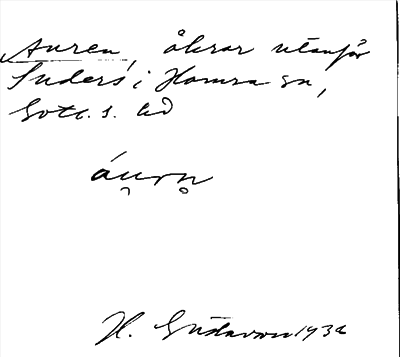 Auren, åkrar utanför
Suders i Hamra sn,
Gotl. s. hd
áu̯rn̥
H. Gustavson 1932